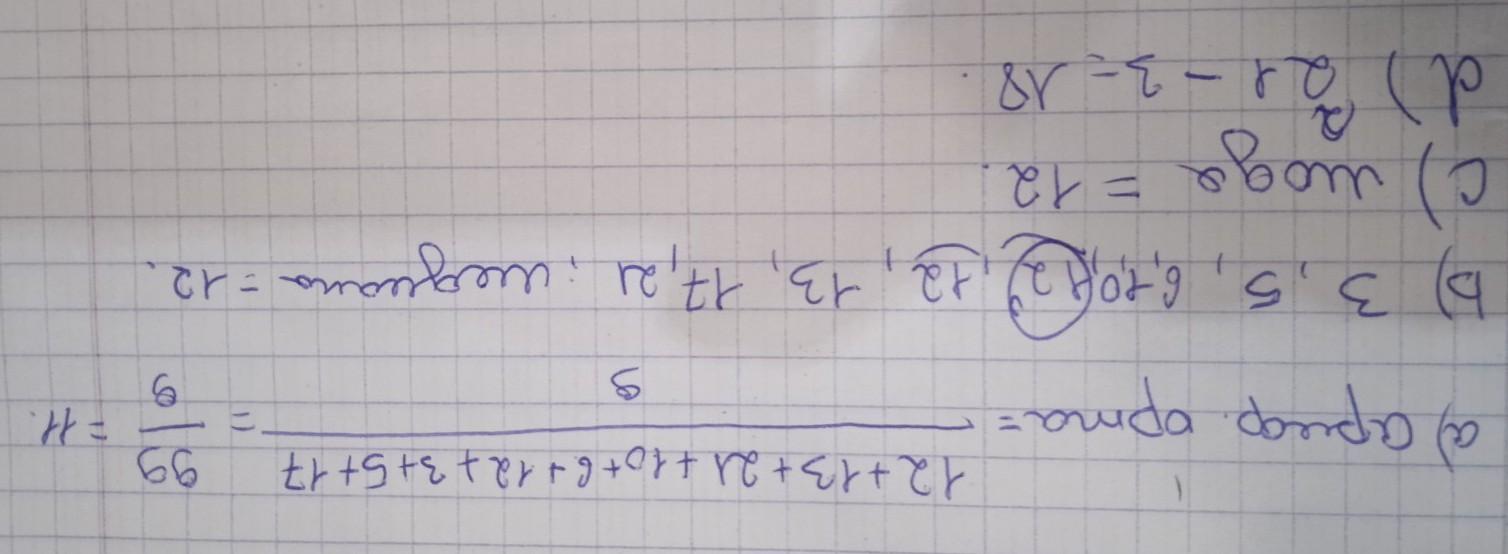 a) арифр. орта = (12+13+21+10+6+12+3+5+17)/9 = 99/9 = 11.
b) 3, 5, 6, 10, 12, 12, 13, 17, 21; медиана = 12.
c) мода = 12.
d) 21 - 3 = 18.